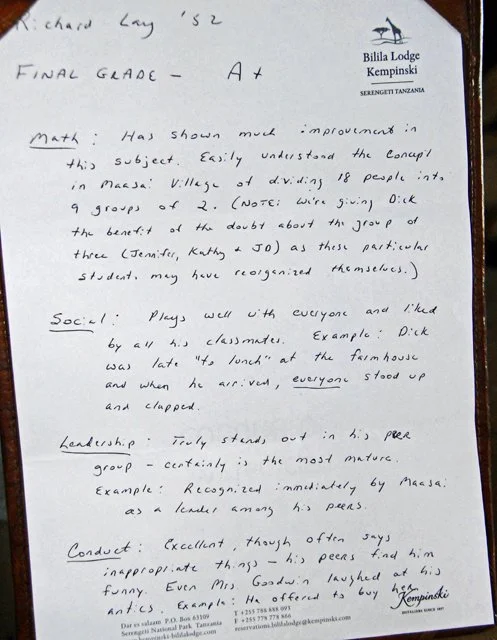 Richard Lay '52
Bilila Lodge
Kempinski
SERENGETI TANZANIA
FINAL GRADE - A+
Math: Has shown much improvement in
this subject. Easily understood the concept
in Maasai Village of dividing 18 people into
9 groups of 2. (NOTE: we're giving Dick
the benefit of the doubt about the group of
three (Jennifer, Kathy & JD) as these particular
students may have reorganized themselves.)
Social: Plays well with everyone and liked
by all his classmates. Example: Dick
was late "to lunch" at the farmhouse
and when he arrived, everyone stood up
and clapped.
Leadership: Truly stands out in his peer
group - certainly is the most mature.
Example: Recognized immediately by Maasai
as a leader among his peers.
Conduct: Excellent, though often says
inappropriate things - his peers find him
funny. Even Mrs Goodwin laughed at his
antics. Example: He offered to buy her
Kempinski
HOTELIERS SINCE 1897
Dar es salaam P.O. Box 63109
Serengeti National Park Tanzania
kempinski-bililalodge.com
T +255 788 888 093
F +255 778 778 866
reservations.bililalodge@kempinski.com